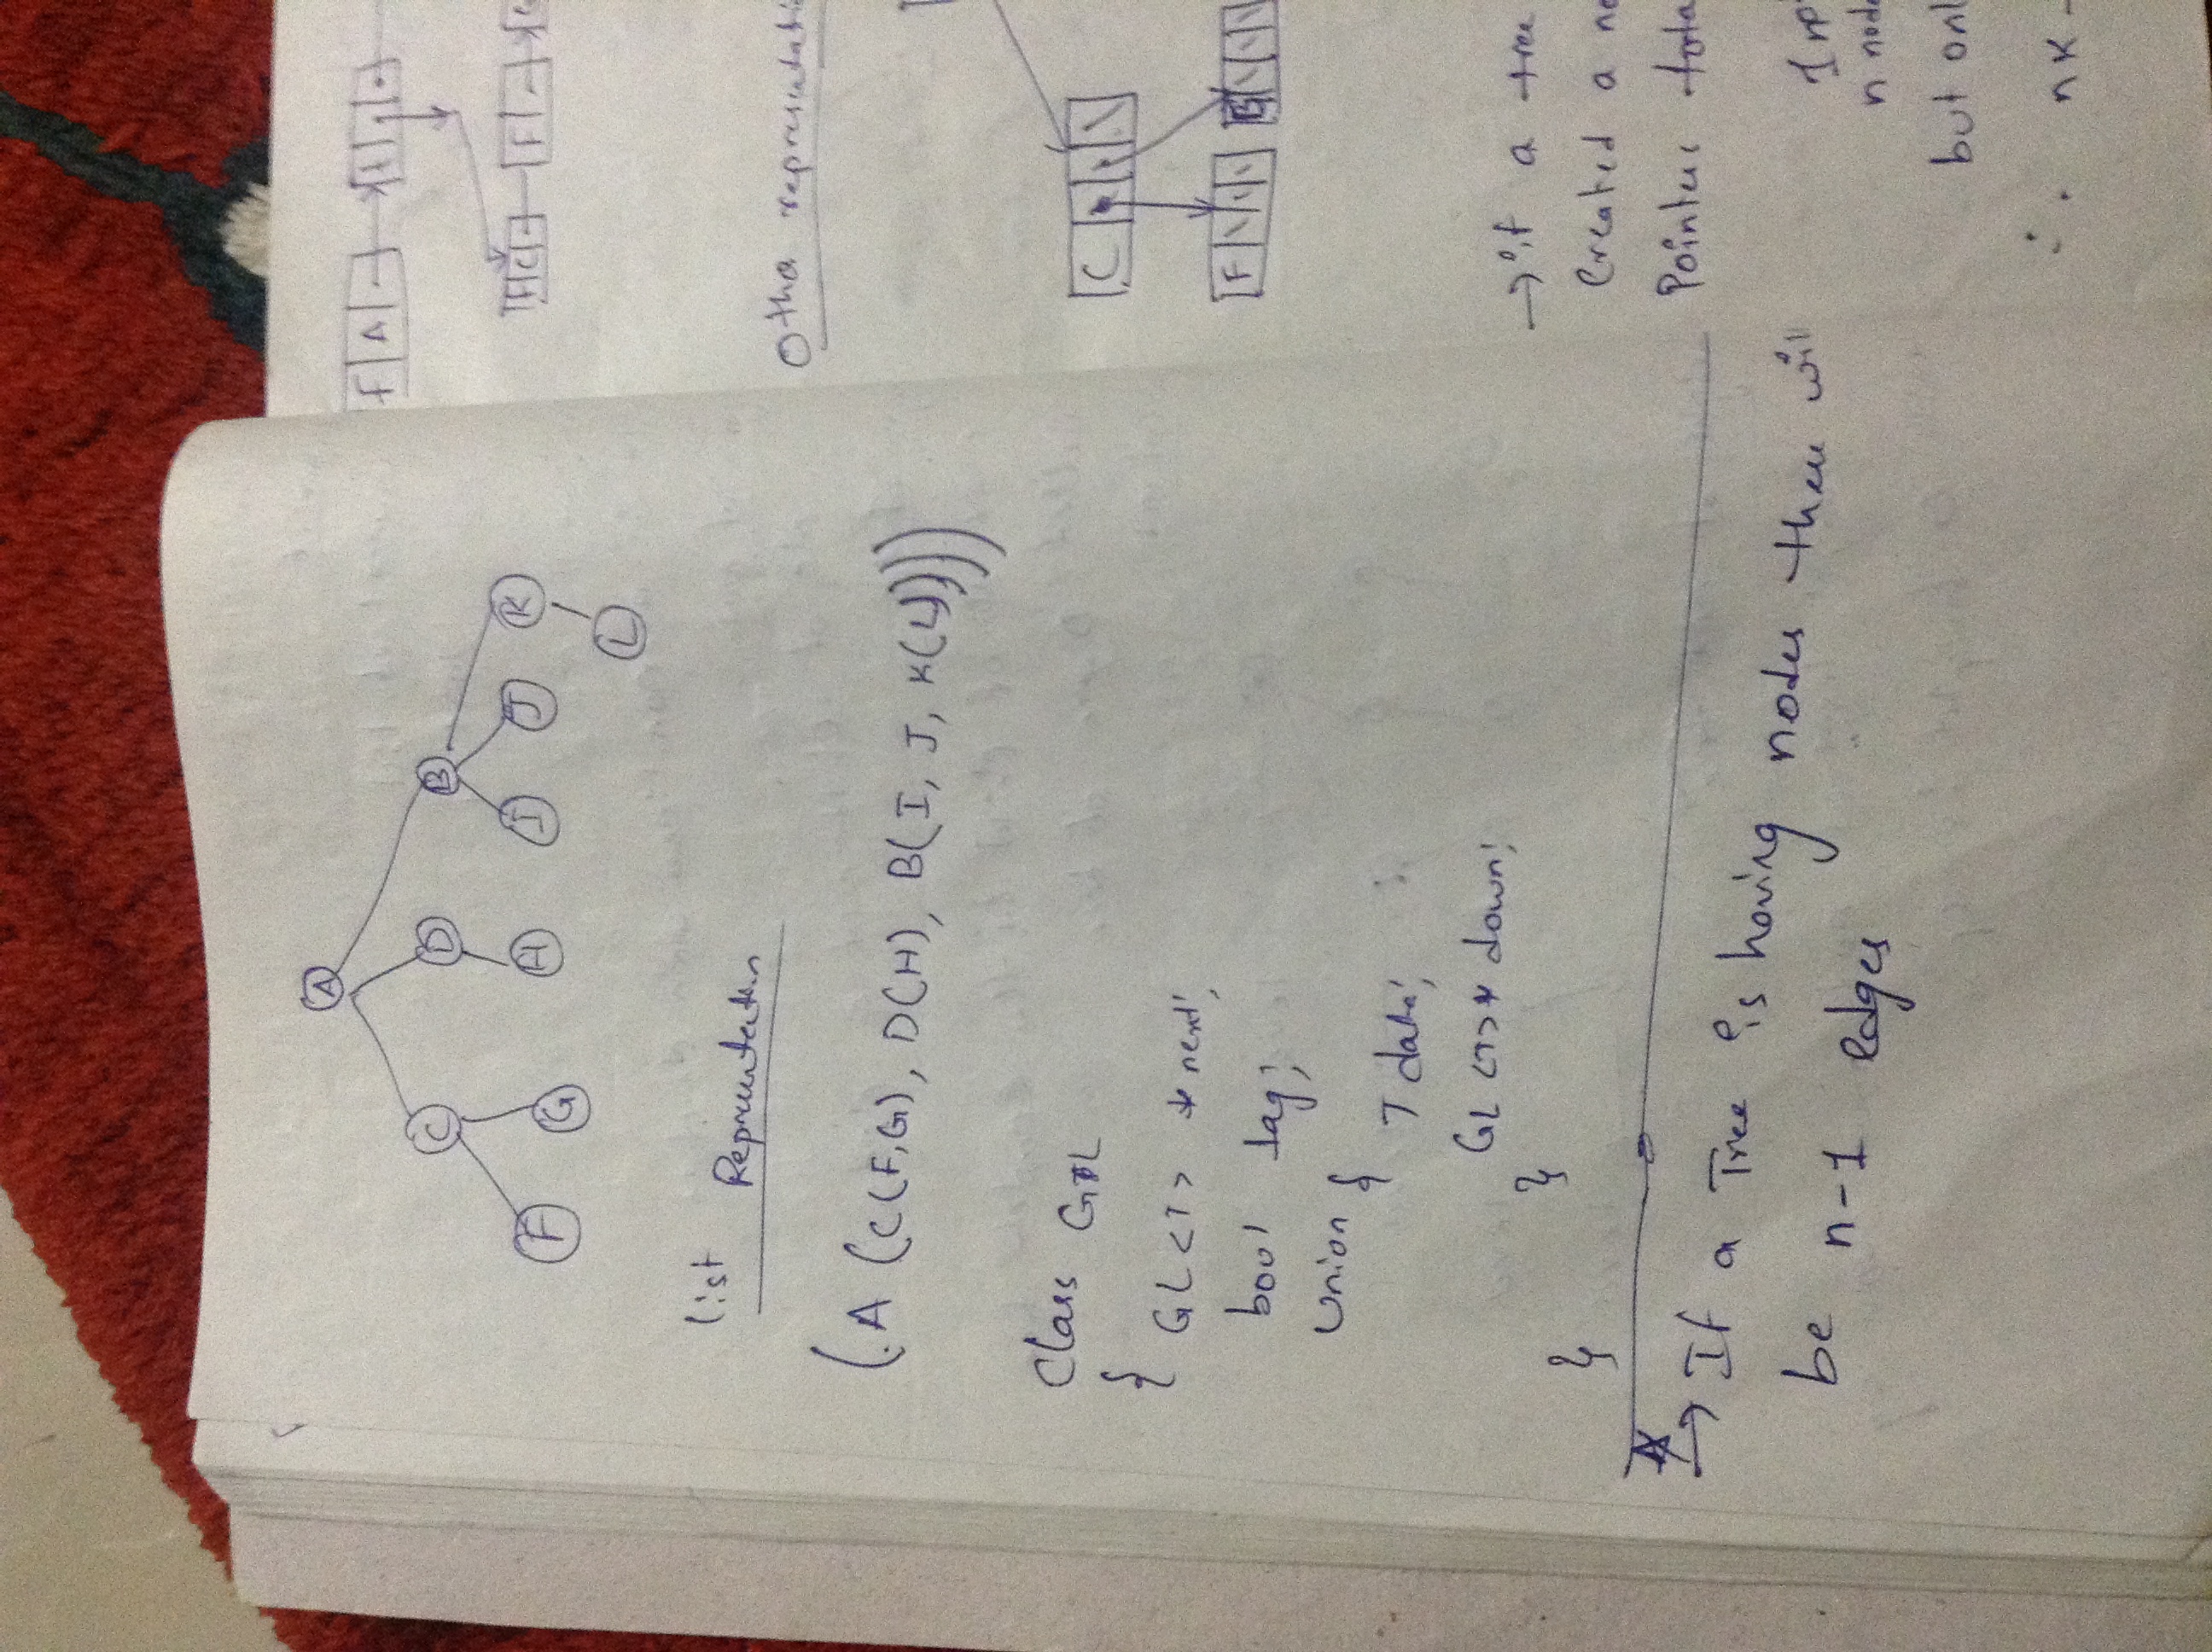 A
C D B
F G H I J K
L
List Representation
(A (C(F,G), D(H), B(I, J, K(L))))
Class GL
{
GL<T> *next;
bool tag;
Union {
T data;
GL<T>* down;
}
}
→ If a Tree is having nodes there will
be n-1 edges
F A
C F
Other
C
F G
→ if a tree
Created a
Pointers
n
but
∴ nK -